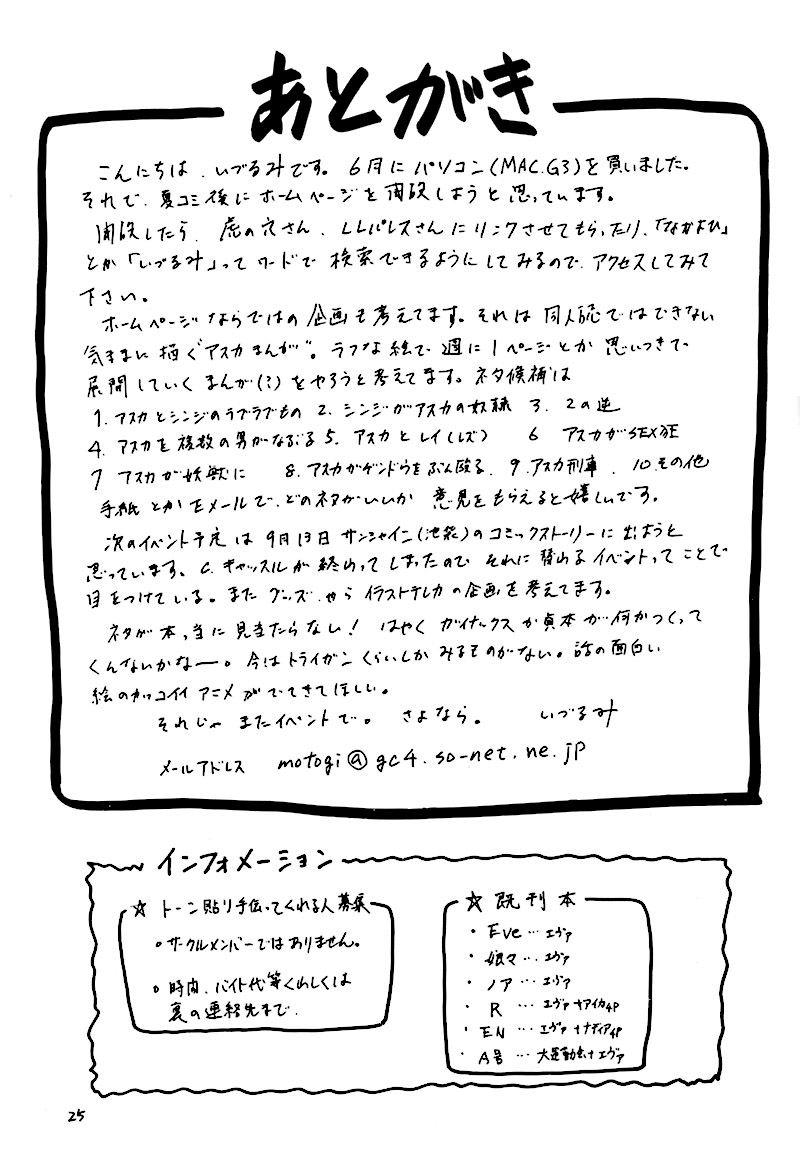 あとがき
こんにちは、いづるみです。6月にパソコン(MAC.G3)を買いました。
それで、夏コミ後にホームページを開設しようと思っています。
開設したら、虎の穴さん、LLパレスさんにリンクさせてもらったり、「なかよひ」
とか「いづるみ」ってワードで検索できるようにしてみるので、アクセスしてみて
下さい。
ホームページならではの企画も考えてます。それは同人誌ではできない
気ままに描く“アスカまんが”。ラフな絵で週に1ページとか思いつきで
展開していくまんが(?)をやろうと考えてます。ネタ候補は
1. アスカとシンジのラブラブもの 2. シンジがアスカの奴隷 3. 2の逆
4. アスカを複数の男がなぶる 5. アスカとレイ(レズ) 6 アスカがSEX狂
7 アスカが妖獣に 8. アスカがゲンドウをぶん殴る. 9. アスカ刑事. 10. その他
手紙とかEメールで、どのネタがいいか意見をもらえると嬉しいです。
次のイベント予定は9月13日サンシャイン(池袋)のコミックストーリーに出ようと
思っています。C.キャッスルが終わってしまったので それに替わるイベントってことで
目をつけている。またグッズ、やらイラストテレカの企画を考えてます。
ネタが本っ当に見当たらない! はやくガイナックスか貞本が何かつくって
くんないかなー。今はトライガンくらいしかみるものがない。話の面白い
絵のカッコイイアニメがでてきてほしい。
それじゃまたイベントで。さよなら。 いづるみ
メールアドレス motogi@gc4.so-net.ne.jp
インフォメーション
☆ トーン貼り手伝ってくれる人募集
○サークルメンバーではありません。
○時間、バイト代等くわしくは
裏の連絡先まで.
☆ 既刊本
・Eve…エヴァ
・娘々…エヴァ
・ノア…エヴァ
・R …エヴァ+アイカ4P
・EN …エヴァ+ナディア4P
・A号 …大運動会+エヴァ
25